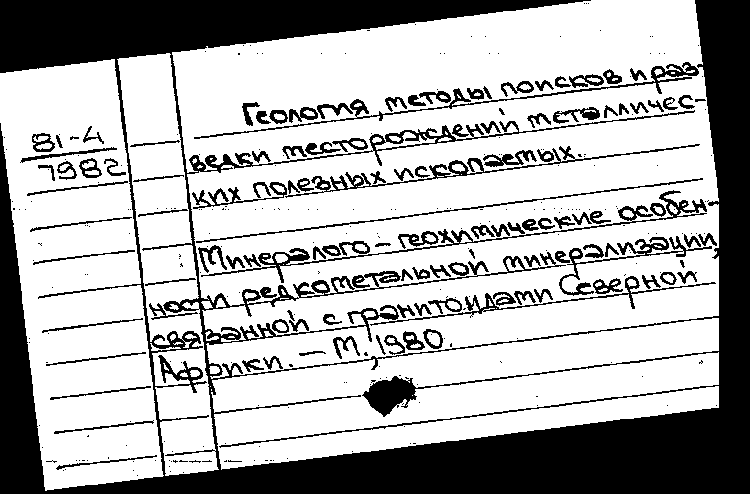 Геология, методы поисков и раз-
81-4
7982
ведки месторождений металличес-
ких полезных ископаемых.
Минералого-геохимические особен-
ности редкометальной минерализации,
связанной с гранитоидами Северной
Африки. – М., 1980.